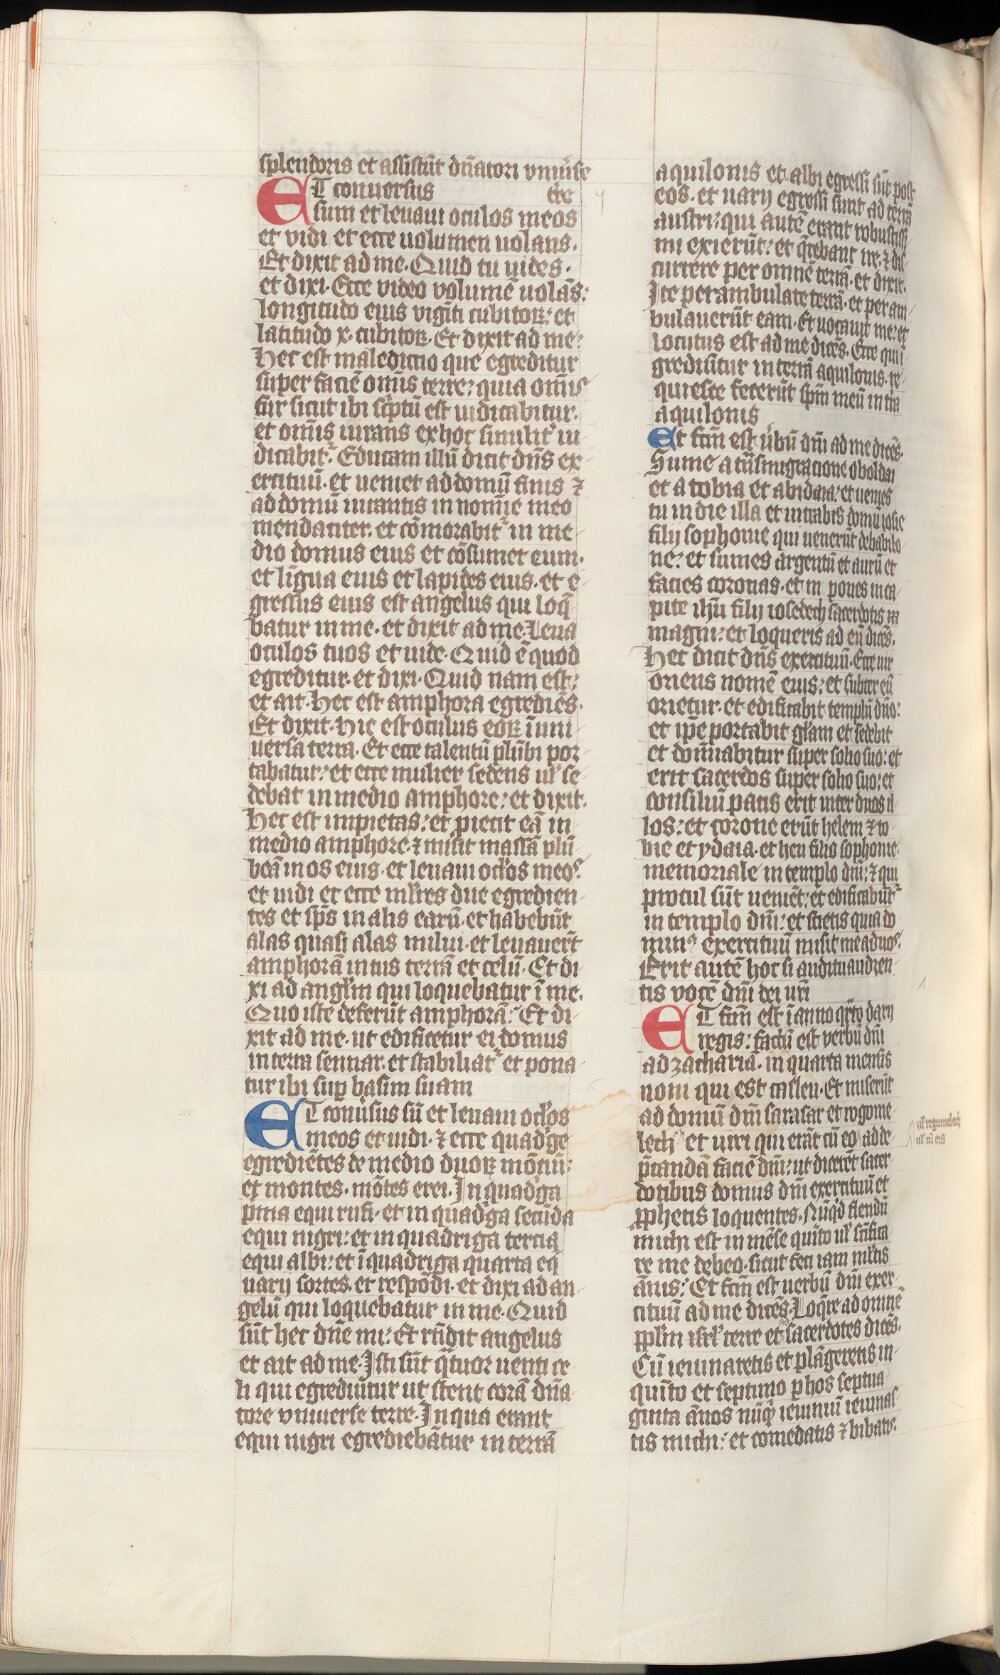 splendoris et assistūt dn̄atori vniuſe
ET conuersus tre
sum et leuaui oculos meos
et vidi et ecce uolumen uolans·
Et dixit ad me· Quid tu uides·
et dixi· Ecce video volumē uolās:
longitudo eius viginti cubitoꝝ: et
latitudo x· cubitoꝝ· Et dixit ad me:
Hec est maledictio que egreditur
super faciē omīs terre: quia omīs
fur sicut ibi sc̄ptū est iudicabitur·
et omīs iurans ex hoc similiť iu
dicabiť· Educam illū dicit dn̄s ex
ercituū· et ueniet ad domū furis ⁊
ad domū iurantis in nomīe meo
mendaciter· et cōmorabiť in me
dio domus eius et cōsumet eum·
et ligna eius et lapides eius· et e
gressus eius est angelus qui loq̄
batur in me· et dixit ad me· Leua
oculos tuos et uide· Quid ē quod
egreditur· et dixi· Quid nam est:
et ait· Hec est amphora egrediēs·
Et dixit· Hic est oculus eoꝝ ī uni
uersa terra· Et ecce talentū plūbi por
tabatur: et ecce mulier sedens ul' se
debat in medio amphore: et dixit·
Hec est impietas: et piecit eā in
medio amphore· ⁊ misit massā plū
beā in os eius· et leuaui oclōs meos·
et uidi et ecce ml'ires due egredien
tes et sp̄s in alis earū· et habebāt
alas quasi alas milui· et leuauer̄t
amphorā intus terrā et celū· Et di
xi ad angl̄m qui loquebatur ī me·
Quo iste deferūt amphorā: Et di
xit ad me· ut edificetur ei domus
in terra sennar· et stabiliať et pona
tur ibi sup̱ basim suam
ET conūsus sū et leuaui oclōs
meos et uidi· ⁊ ecce quadⁱge
egrediētes de medio duoꝝ mōtiū:
et montes· mōtes erei· In quadⁱga
pⁱma equi rufi· et in quadⁱga secūda
equi nigri: et in quadriga tercia
equi albi: et ī quadriga quarta eq̄
uarij fortes· et respōdi· et dixi ad an
gelū qui loquebatur in me· Quid
sūt hec dn̄e mi: Et rn̄dit angelus
et ait ad me· Isti sūt q̄tuor uenti ce
li qui egrediūtur ut stent corā dn̄a
tore vniuerse terre· In qua erant
equi nigri egrediebātur in terrā
aquilonis et albi egressi sūt post
eos· et uarij egressi sunt ad terrā
austri: qui autē erant robustissi
mi exierūt: et q̄rebant ire· ⁊ dis
currere per omnē terrā· et dixit·
Ite perambulate terrā· et peram
bulauerūt eam· Et uocauit me: et
locutus est ad me dicēs· Ecce qui
grediūtur in terrā aquilonis· re
quiesce fecerūt spm̄ meū in tr̄a
aquilonis
Et fcm̄ est ūbū dn̄i ad me dicēs·
Sume a trāsmigracione oboldai
et a tobia et abidaia: et uenies
tu in die illa et intrabis domū iosie
filij sophonie qui uenerūt de babilo
ne: et sumes argentū et aurū et
facies coronas· et in pones in ca
pite ihū filij iosedech sacerdotis
magni: et loqueris ad eū dicēs·
Hec dicit dn̄s exercituū· Ecce uir
oriens nomē eius: et subter eū
orietur· et edificabit templū dn̄o:
et ip̄e portabit gl̄iam et sedebit
et domīabitur super solio suo: et
erit sacerdos super solio suo: et
consiliū pacis erit inter duos il
los: et corone erūt helem ⁊ to
bie et ydaia· et hen filio sophonie·
memoriale in templo dn̄i: ⁊ qui
procul sūt ueniēt: et edificabūť
in templo dn̄i: et scietis quia do
minꝰ exercituū misit me ad uos·
Erit autē hoc si auditu audien
tis vocē dn̄i dei uri
ET fcm̄ est ī anno q̄rto darij
regis: factū est verbū dn̄i
ad zachariā· in quarta mensis
noni qui est casleu· Et miserūt
ad domū dn̄i sarasar et rogome
lech et uiri qui erāt cū eo ad de
p̄candā faciē dn̄i: ut dicerēt sacer
dotibus domus dn̄i exercituū et
ꝓphetis loquentes· Nūqⁱd flendū
michi est in mēse quīto ul' sc̄ifica
re me debeo· sicut feci iam ml'tis
ānis: Et fcm̄ est uerbū dn̄i exer
cituū ad me dicēs· Loq̄re ad omnē
ppl̄m isrl' terre et sacerdotes dicēs·
Cū ieiunaretis et plāgeretis in
quīto et septimo p̱ hos septua
ginta ānos nūqⁱd ieiuniū ieiunas
tis michi: et comedatis ⁊ bibatis·
ul' regumelech
ul' cū eis